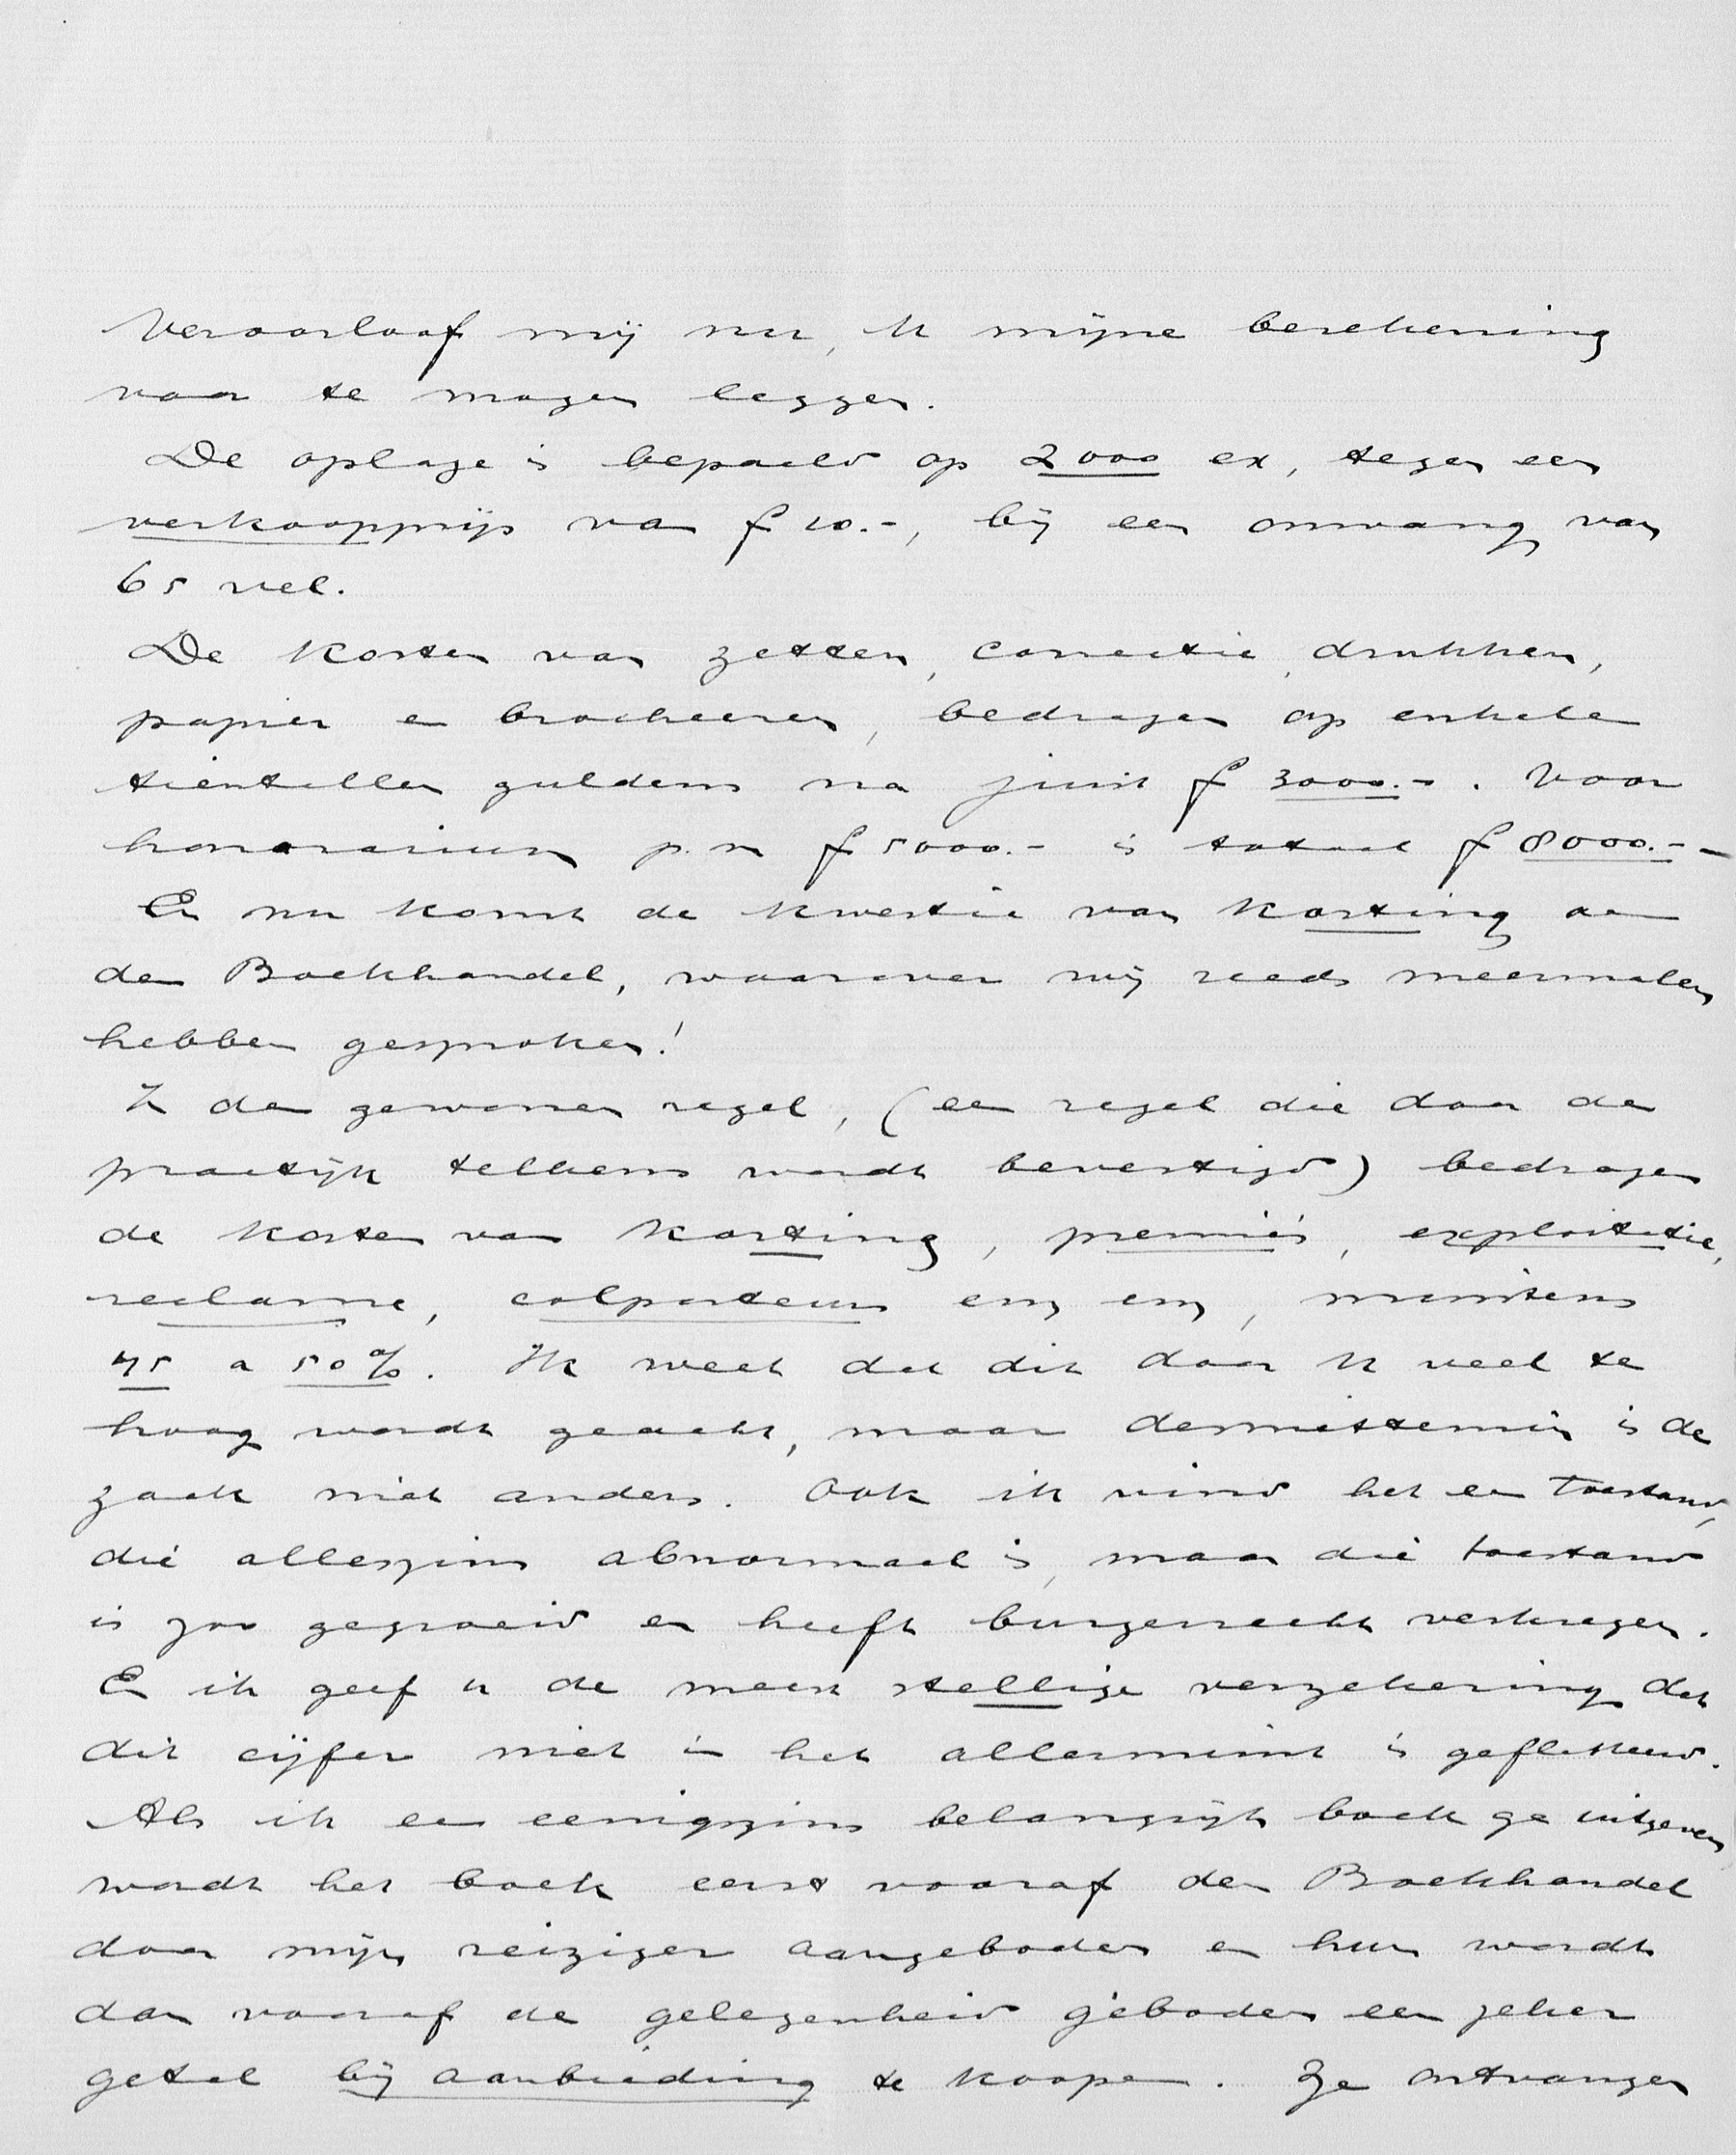 Veroorloof mij nu, U mijne berekening
voor te mogen leggen.
De oplage is bepaald op 2000 ex, tegen een
verkoopprijs van f 10.-, bij een omvang van
65 vel.
De kosten van zetten, correctie, drukken,
papier en brocheeren, bedragen op enkele
tientallen guldens na juist f 3000.-. Voor
honorarium p.m f 5000.- is totaal f 8000.--
En nu komt de kwestie van korting aan
den Boekhandel, waarover wij reeds meermalen
hebben gesproken!
In den gewonen regel, (een regel die door de
practijk telkens wordt bevestigd) bedragen
de kosten van korting, premies, exploitatie,
reclame, colporteurs enz enz, minstens
45 a 50%. Ik weet dat dit door U veel te
hoog wordt geacht, maar desniettemin is de
zaak niet anders. Ook ik vind het een toestand,
die alleszins abnormaal is, maar die toestand
is zoo gegroeid en heeft burgerrecht verkregen.
En ik geef u de meest stellige verzekering dat
dit cijfer niet in het allerminst is geflatteerd.
Als ik een eenigszins belangrijk boek ga uitgeven
wordt het boek eerst vooraf den Boekhandel
door mijn reiziger aangeboden en hun wordt
dan vooraf de gelegenheid geboden een zeker
getal bij aanbieding te koopen. Ze ontvangen